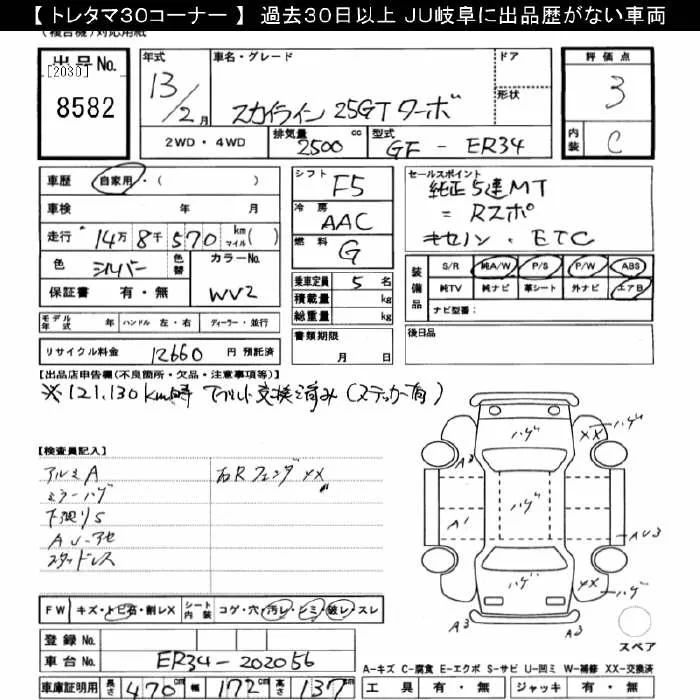 【トレタマ30コーナー】 過去30日以上 JU岐阜に出品歴がない車両
(複合機)対応用紙
出品No.
[2030]
8582
年式 車名・グレード ドア
13/2月 スカイライン 25GTターボ
形状
2WD・4WD 排気量 2500 cc 型式 GF - ER34
評価点
3
内装 C
車歴 自家用・( )
車検 年 月
走行 14万8千570 km マイル( )
色 シルバー 色替 カラーNo. WV2
保証書 有・無
モデル年式 年 ハンドル 左・右 ディーラー・並行
リサイクル料金 12660 円 預託済
シフト F5
冷房 AAC
燃料 G
乗車定員 5 名
積載量 kg
総重量 kg
書類期限
月 日
セールスポイント
純正5速MT
= Rスポ
キセノン・ETC
装備品 S/R 純A/W P/S P/W ABS
純TV 純ナビ 革シート 外ナビ エアB
ナビ型番:
後日品
【出品店申告欄(不良箇所・欠品・注意事項等)】
※121,130km時 T/ベルト交換済み(ステッカー有)
【検査員記入】
アルミA 右Rフェンダ XX
ミラーハゲ
下廻りS
AU-アセ
スタッドレス
ハゲ
XX ハゲ
A3
ハゲ
A1
AU3
ハゲ
XX ハゲ
A3 A3
スペア
FW キズ・トビ石・割レX シート内装 コゲ・穴・汚レ・シミ・破レ・スレ
登録No.
車台No. ER34-202056
車庫証明用 長さ 470cm 幅 172cm 高さ 137cm
A-キズ C-腐食 E-エクボ S-サビ U-凹ミ W-補修 XX-交換済
工具 有・無 ジャッキ 有・無